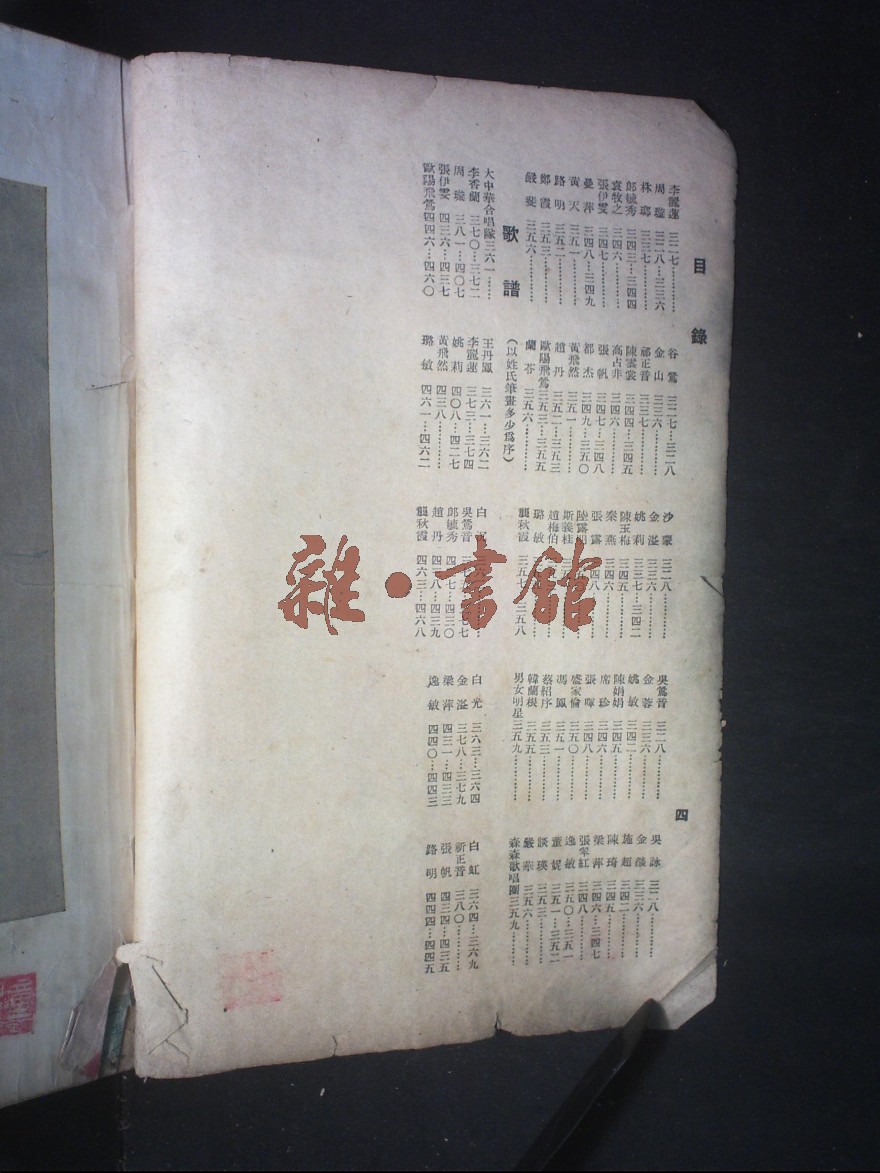 目錄 四
李麗蓮 三二七………… 谷鶯 三二七…三二八 沙蒙 三二八………… 吳鶯音 三二八………… 吳詠 三二八…………
周璇 三二八…三三六 金山 三三六………… 金溢 三三六………… 金蓉 三三六………… 金燄 三三六…………
林瑯 三三七………… 祁正音 三三七………… 姚莉 三三七…三四二 姚敏 三四二………… 施超 三四二…………
郎毓秀 三四三…三四四 陳雲裳 三四四…三四五 陳玉梅 三四五………… 陳娟娟 三四五………… 陳琦 三四五…………
袁牧之 三四六………… 高占非 三四六………… 秦燕 三四六………… 席珍 三四六………… 梁萍 三四六…三四七
張伊雯 三四七………… 張帆 三四七…三四八 張露 三四八………… 張暉 三四八………… 張翠紅 三四八…………
曼萍 三四八…三四九 都杰 三四九…三五〇 陸露明 盛家倫 三五〇………… 逸敏 三五〇…三五一
黃天 三五一………… 黃飛然 三五一………… 斯義桂 馮鳳 三五一………… 董妮 三五一…三五二
路明 三五二………… 趙丹 三五二…三五三 趙梅伯 蔡紹序 三五三………… 談瑛 三五三…………
鄭霞 三五三………… 歐陽飛鶯 三五三…三五五 璐敏 韓蘭根 三五五………… 嚴華 三五六…………
嚴斐 三五六………… 蘭苓 三五六………… 龔秋霞 三五七…三五八 男女明星 三五九………… 森森歌唱團 三五九…………
歌譜 (以姓氏筆畫多少爲序)
大中華合唱隊 三六一…… 王丹鳳 三六一…三六二 白 白光 三六三…三六四 白虹 三六四…三六九
李香蘭 三七〇…三七二 李麗蓮 三七三…三七四 吳鶯音 金溢 三七八…三七九 祁正音 三八〇…………
周璇 三八一…四〇七 姚莉 四〇八…四二七 郎毓秀 梁萍 四三一…四三三 張帆 四三四…四三五
張伊雯 四三六…四三七 黃飛然 四三八………… 趙丹 四三八…四三九 逸敏 四四〇…四四三 路明 四四四…四四五
歐陽飛鶯 四四六…四六〇 璐敏 四六一…四六二 龔秋霞 四六三…四六八
雜·書館